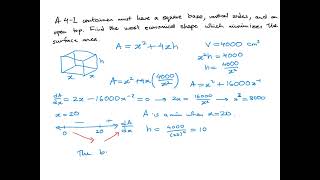 A 4-L container must have a square base, vertical sides, and an
open top. Find the most economical shape which minimizes the
surface area.
A = x² + 4xh
V = 4000 cm³
x²h = 4000
h = 4000/x²
h
x
x
A = x² + 4x(4000/x²)
A = x² + 16000x⁻¹
dA/dx = 2x - 16000x⁻² = 0 → 2x = 16000/x² → x³ = 8000
x = 20
A is a min when x = 20
- + dA/dx
0 20
h = 4000/(20)² = 10
The b